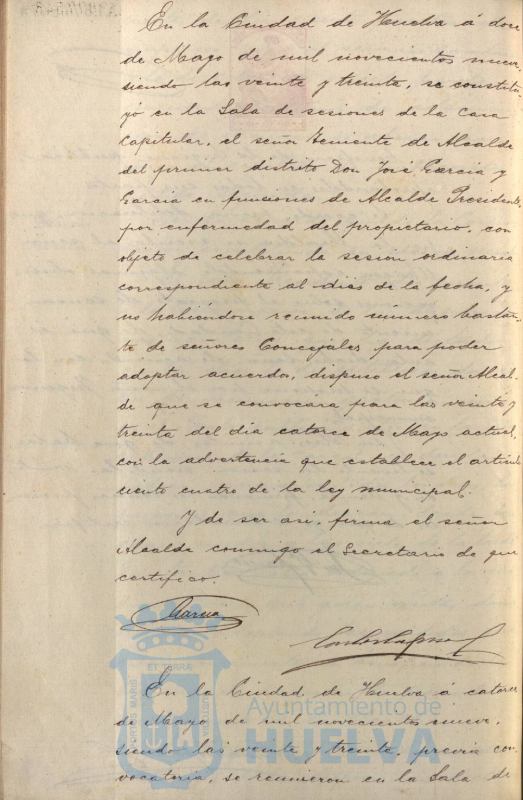 En la Ciudad de Huelva á doce
de Mayo de mil novecientos nueve
siendo las veinte y treinta, se constitu-
yó en la Sala de sesiones de la Casa
Capitular, el señor Teniente de Alcalde
del primer distrito Don José García y
García en funciones de Alcalde Presidente,
por enfermedad del propietario, con
objeto de celebrar la sesión ordinaria
correspondiente al dias de la fecha, y
no habiéndose reunido número bastan-
te de señores Concejales para poder
adoptar acuerdo, dispuso el señor Alcal-
de que se convocára para las veinte y
treinta del dia catorce de Mayo actual,
con la advertencia que establece el articulo
ciento cuatro de la ley municipal.
Y de ser asi, firma el señor
Alcalde conmigo el Secretario de que
certifico.
Garcia
En la Ciudad de Huelva á catorce
de Mayo de mil novecientos nueve,
siendo las veinte y treinta, previa con-
vocatoria, se reunieron en la Sala de
ET TERRA
PORTUS MARIS
Ayuntamiento de
HUELVA